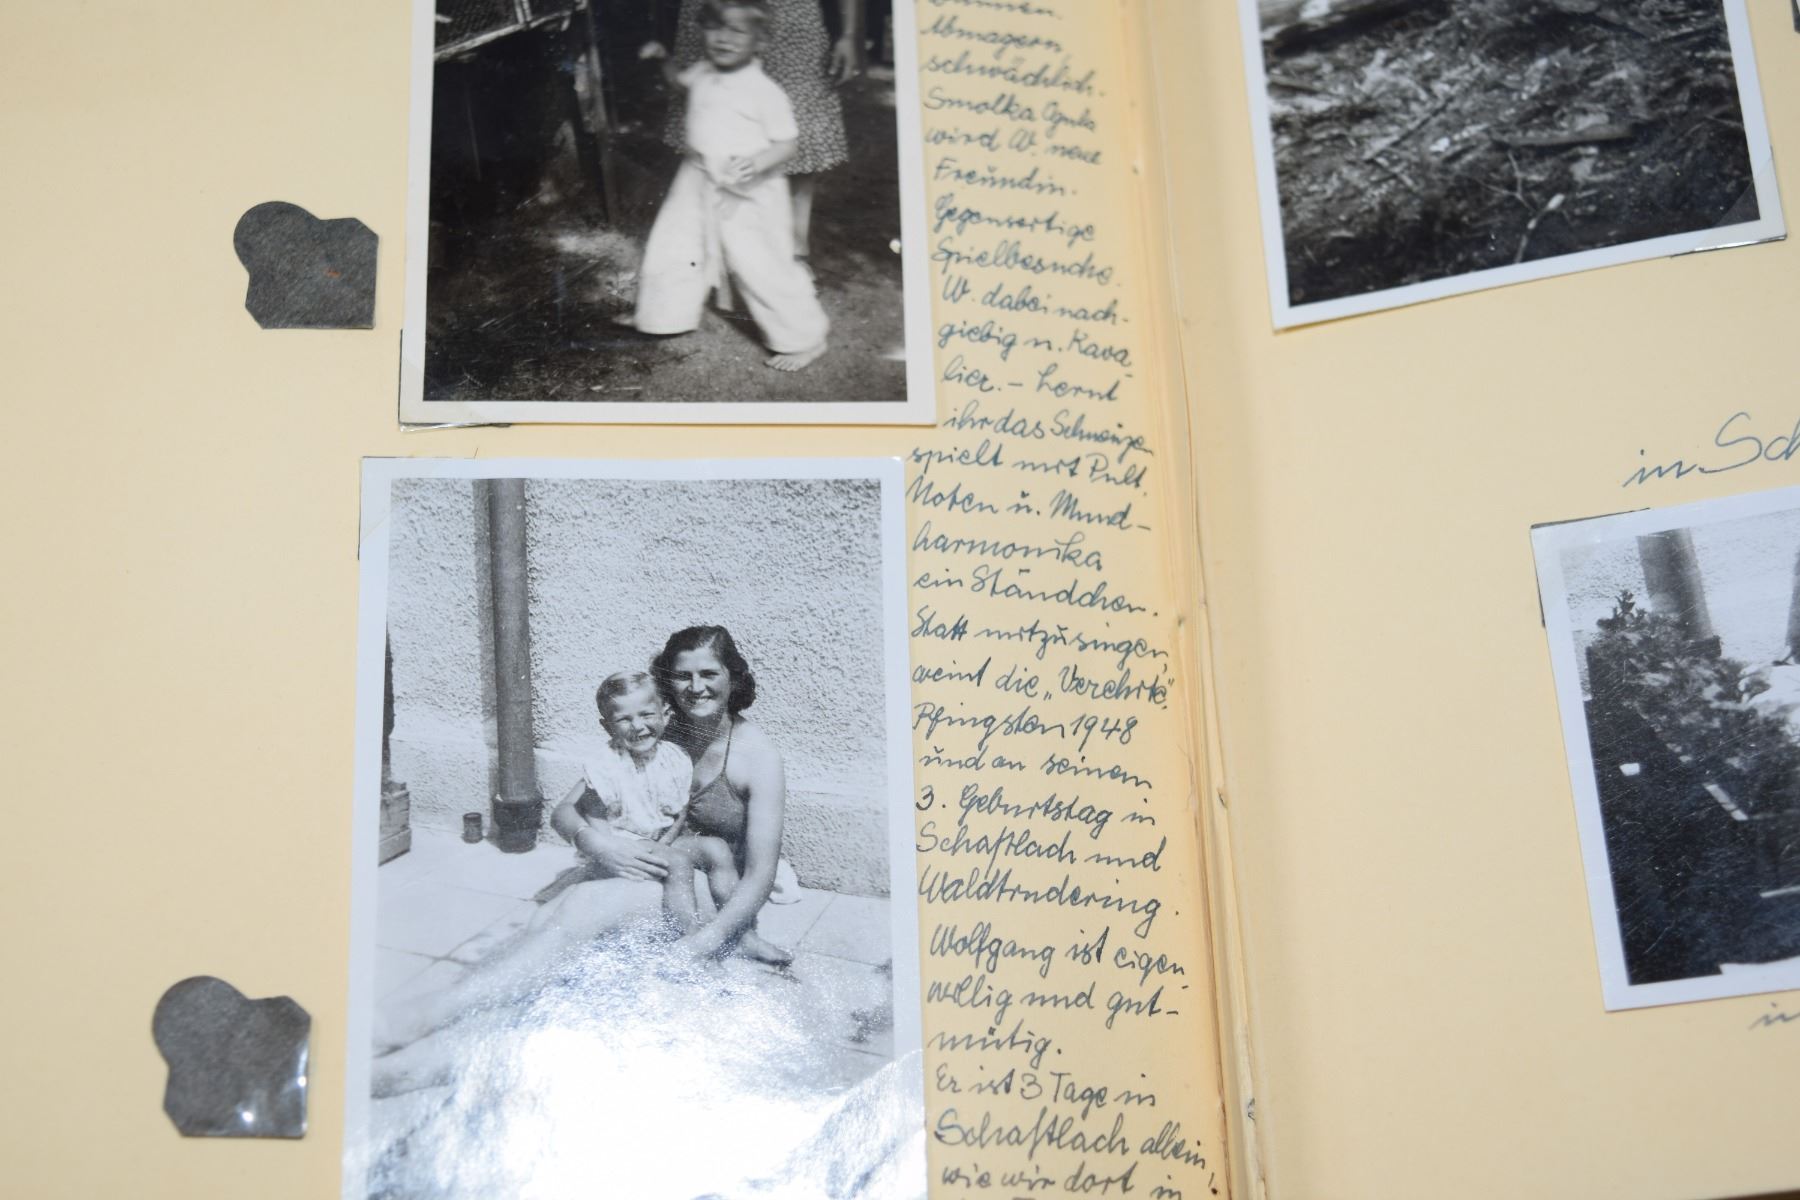 Abmagern,
schwächlich.
Smolka
wird W. neue
Freundin.
Gegenseitige
Spielbesuche.
W. dabei nach-
giebig u. Kava-
lier. – Lernt
ihr das
spielt mit Pult,
Noten u. Mund-
harmonika
ein Ständchen.
Statt mitzusingen,
weint die „Verehrte".
Pfingsten 1948
und an seinem
3. Geburtstag in
Schaftlach und
Waldtrudering.
Wolfgang ist eigen-
willig und gut-
mütig.
Er ist 3 Tage in
Schaftlach allein,
wie wir dort in
in Sch
in